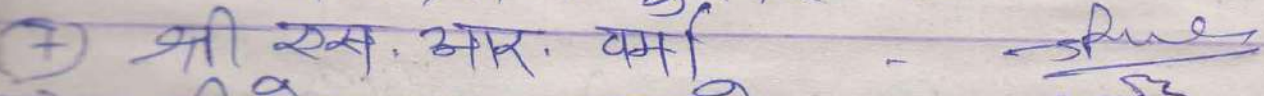 7) श्री एस. आर. वर्मा -